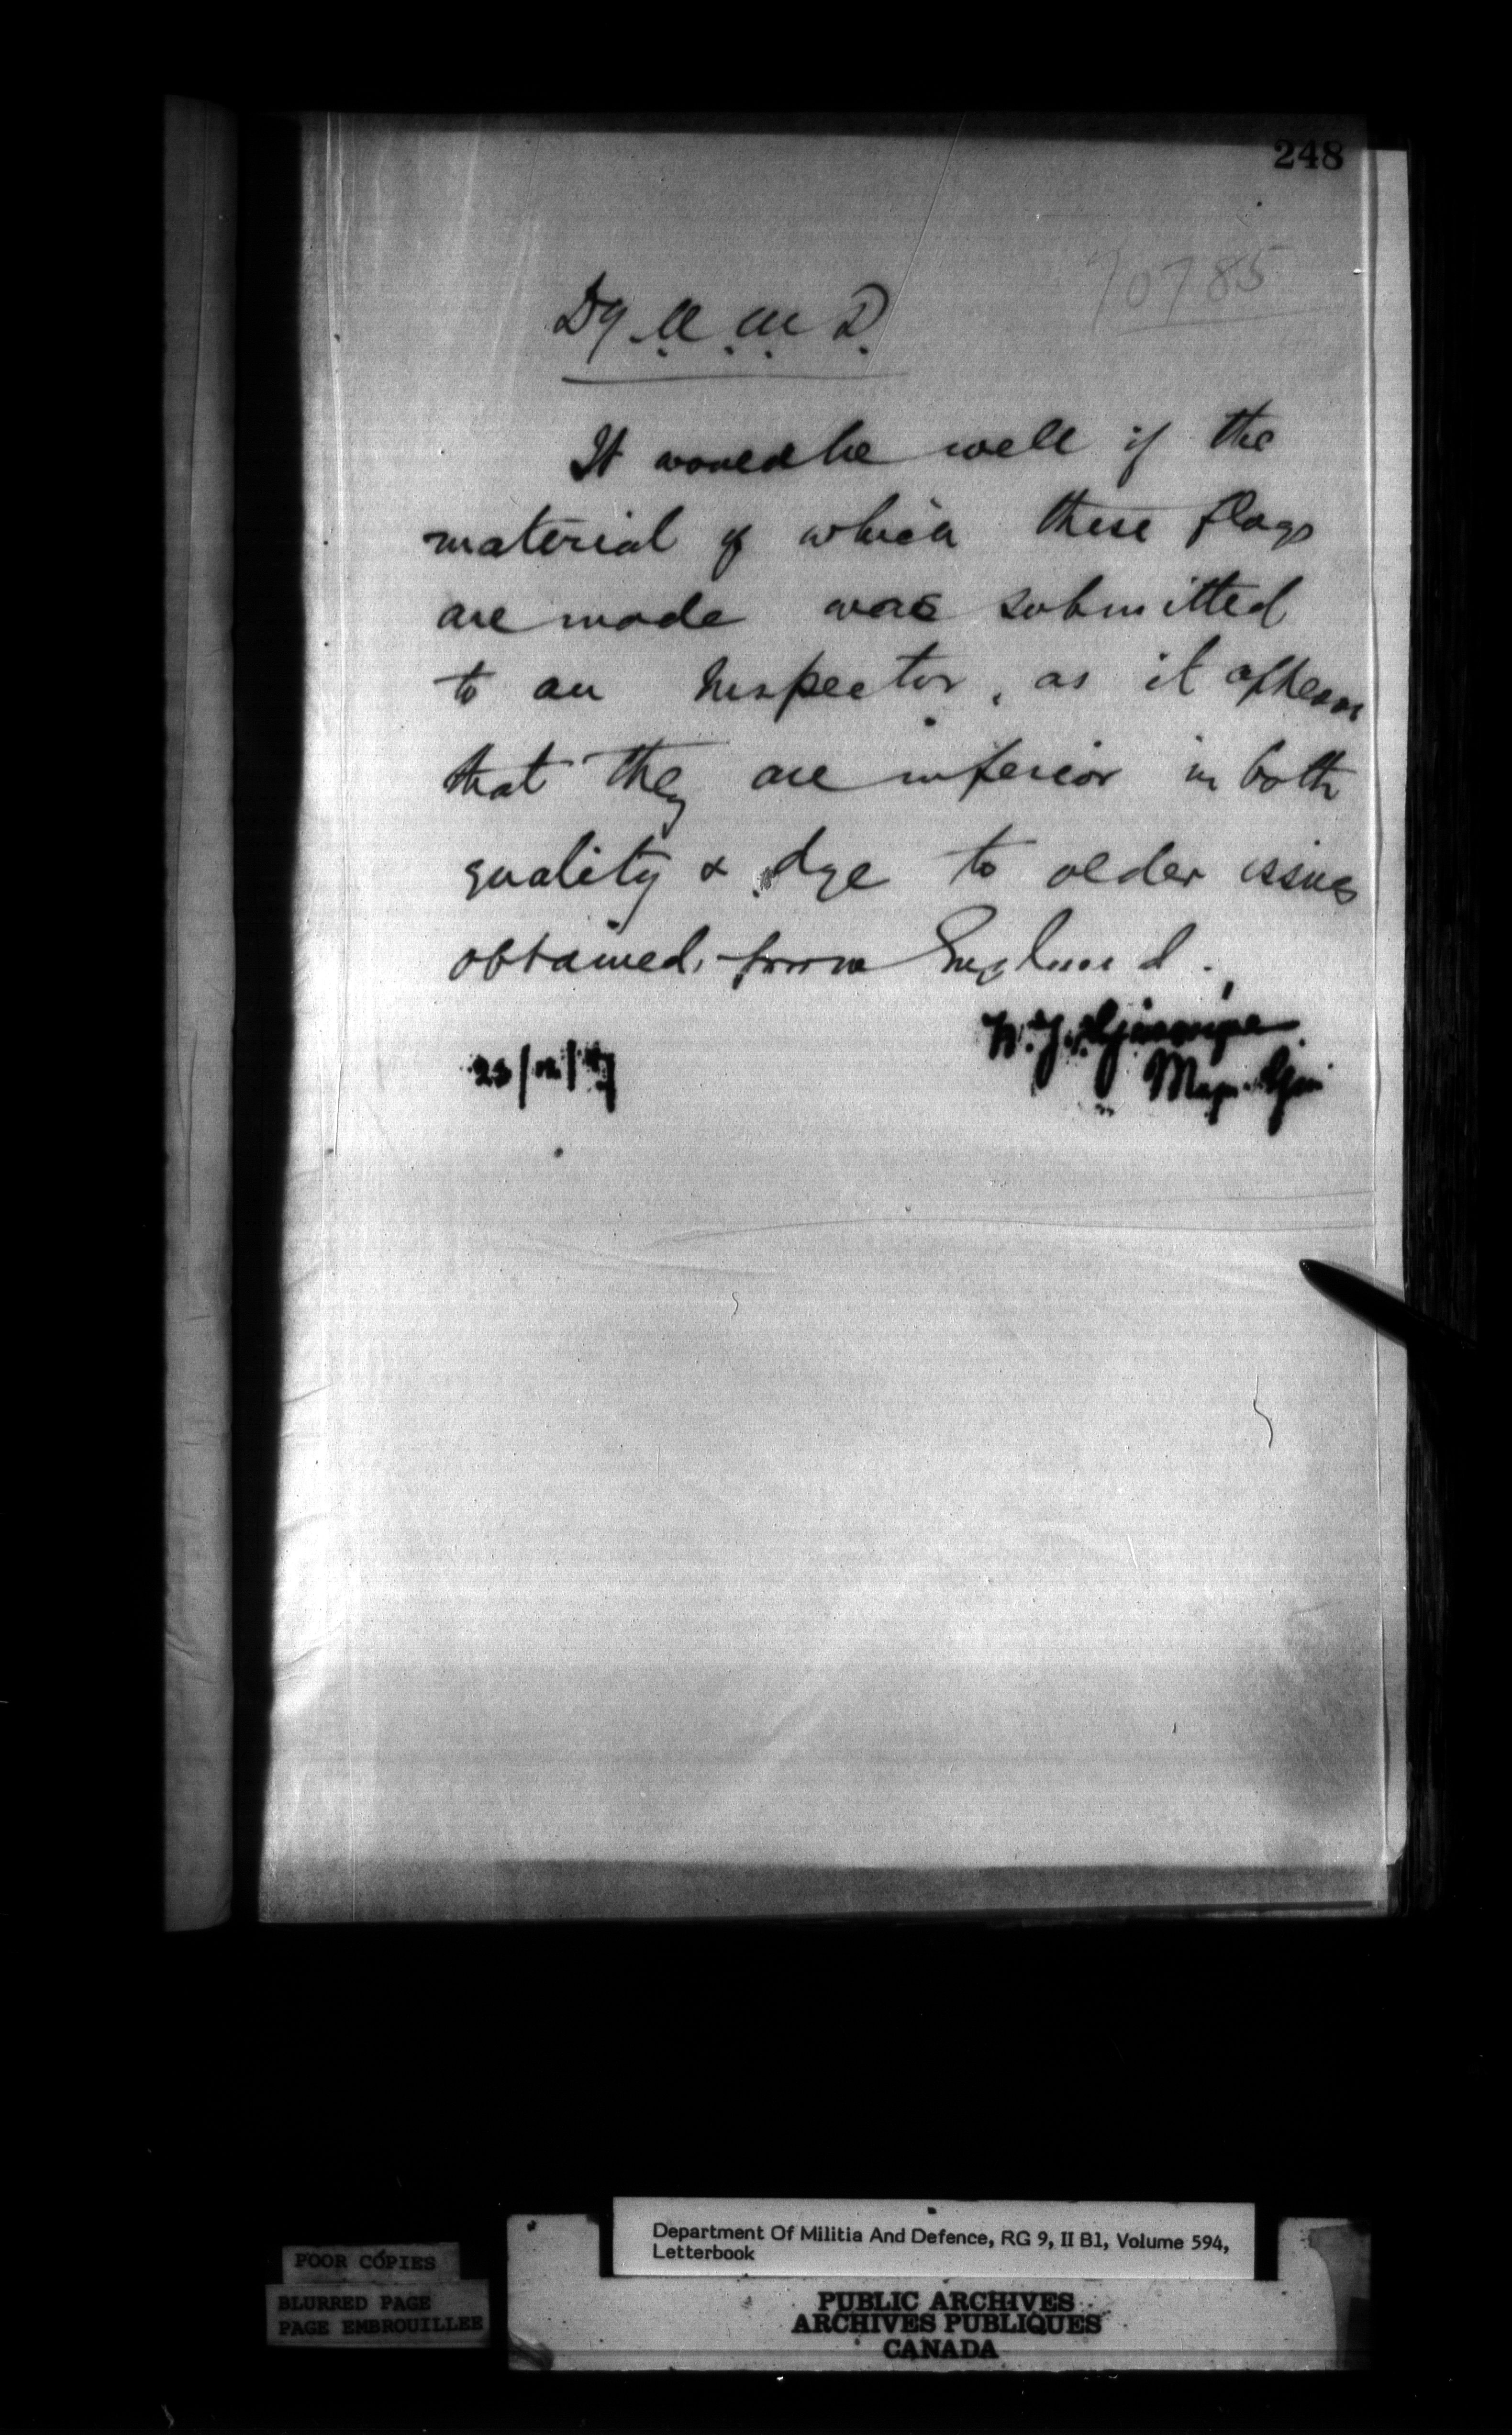 248
70785
Dy. M. M. D.
It would be well if the
material of which these flags
are made was submitted
to an Inspector, as it appears
that they are inferior in both
quality & dye to older issues
obtained from England.
W. J.
23/12/97
Maj. Gen
POOR COPIES
BLURRED PAGE
PAGE EMBROUILLEE
Department Of Militia And Defence, RG 9, II B1, Volume 594,
Letterbook
PUBLIC ARCHIVES
ARCHIVES PUBLIQUES
CANADA